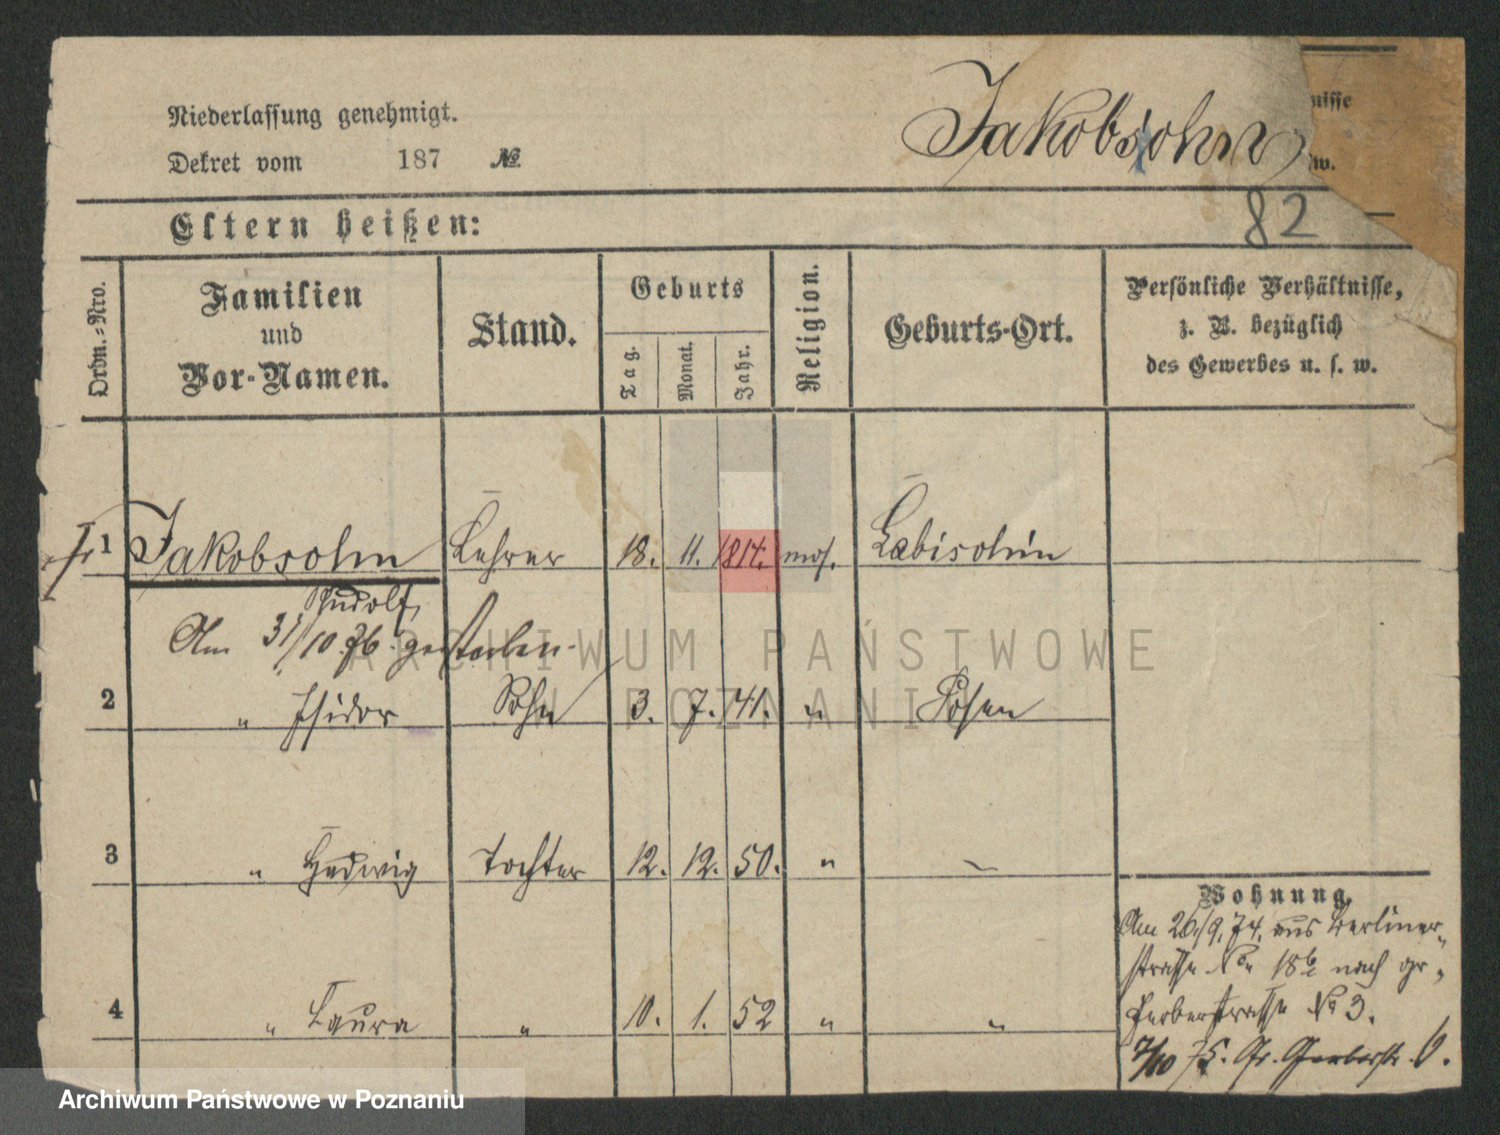 Niederlassung genehmigt.
Dekret vom 187 №
Jakobsohn
nisse
w.
82
Eltern heißen:
Ordn.-Nro.
Familien
und
Vor-Namen.
Stand.
Geburts
Tag.
Monat.
Jahr.
Religion.
Geburts-Ort.
Persönliche Verhältnisse,
z. B. bezüglich
des Gewerbes u. s. w.
1 Jakobsohn Lehrer 18. 11. 1814. mos. Labischin
Rudolf
Am 31/10 76. gestorben.
2 " Isidor Sohn 3. 7. 41. " Posen
3 " Hedwig Tochter 12. 12. 50. " "
4 " Laura " 10. 1. 52 " "
Wohnung.
Am 26/9. 74. aus Berliner-
strasse No 18 b nach gr.
Gerberstrasse № 3.
7/10 75. Gr. Gerberstr. 6.
ARCHIWUM PAŃSTWOWE
W POZNANIU
Archiwum Państwowe w Poznaniu